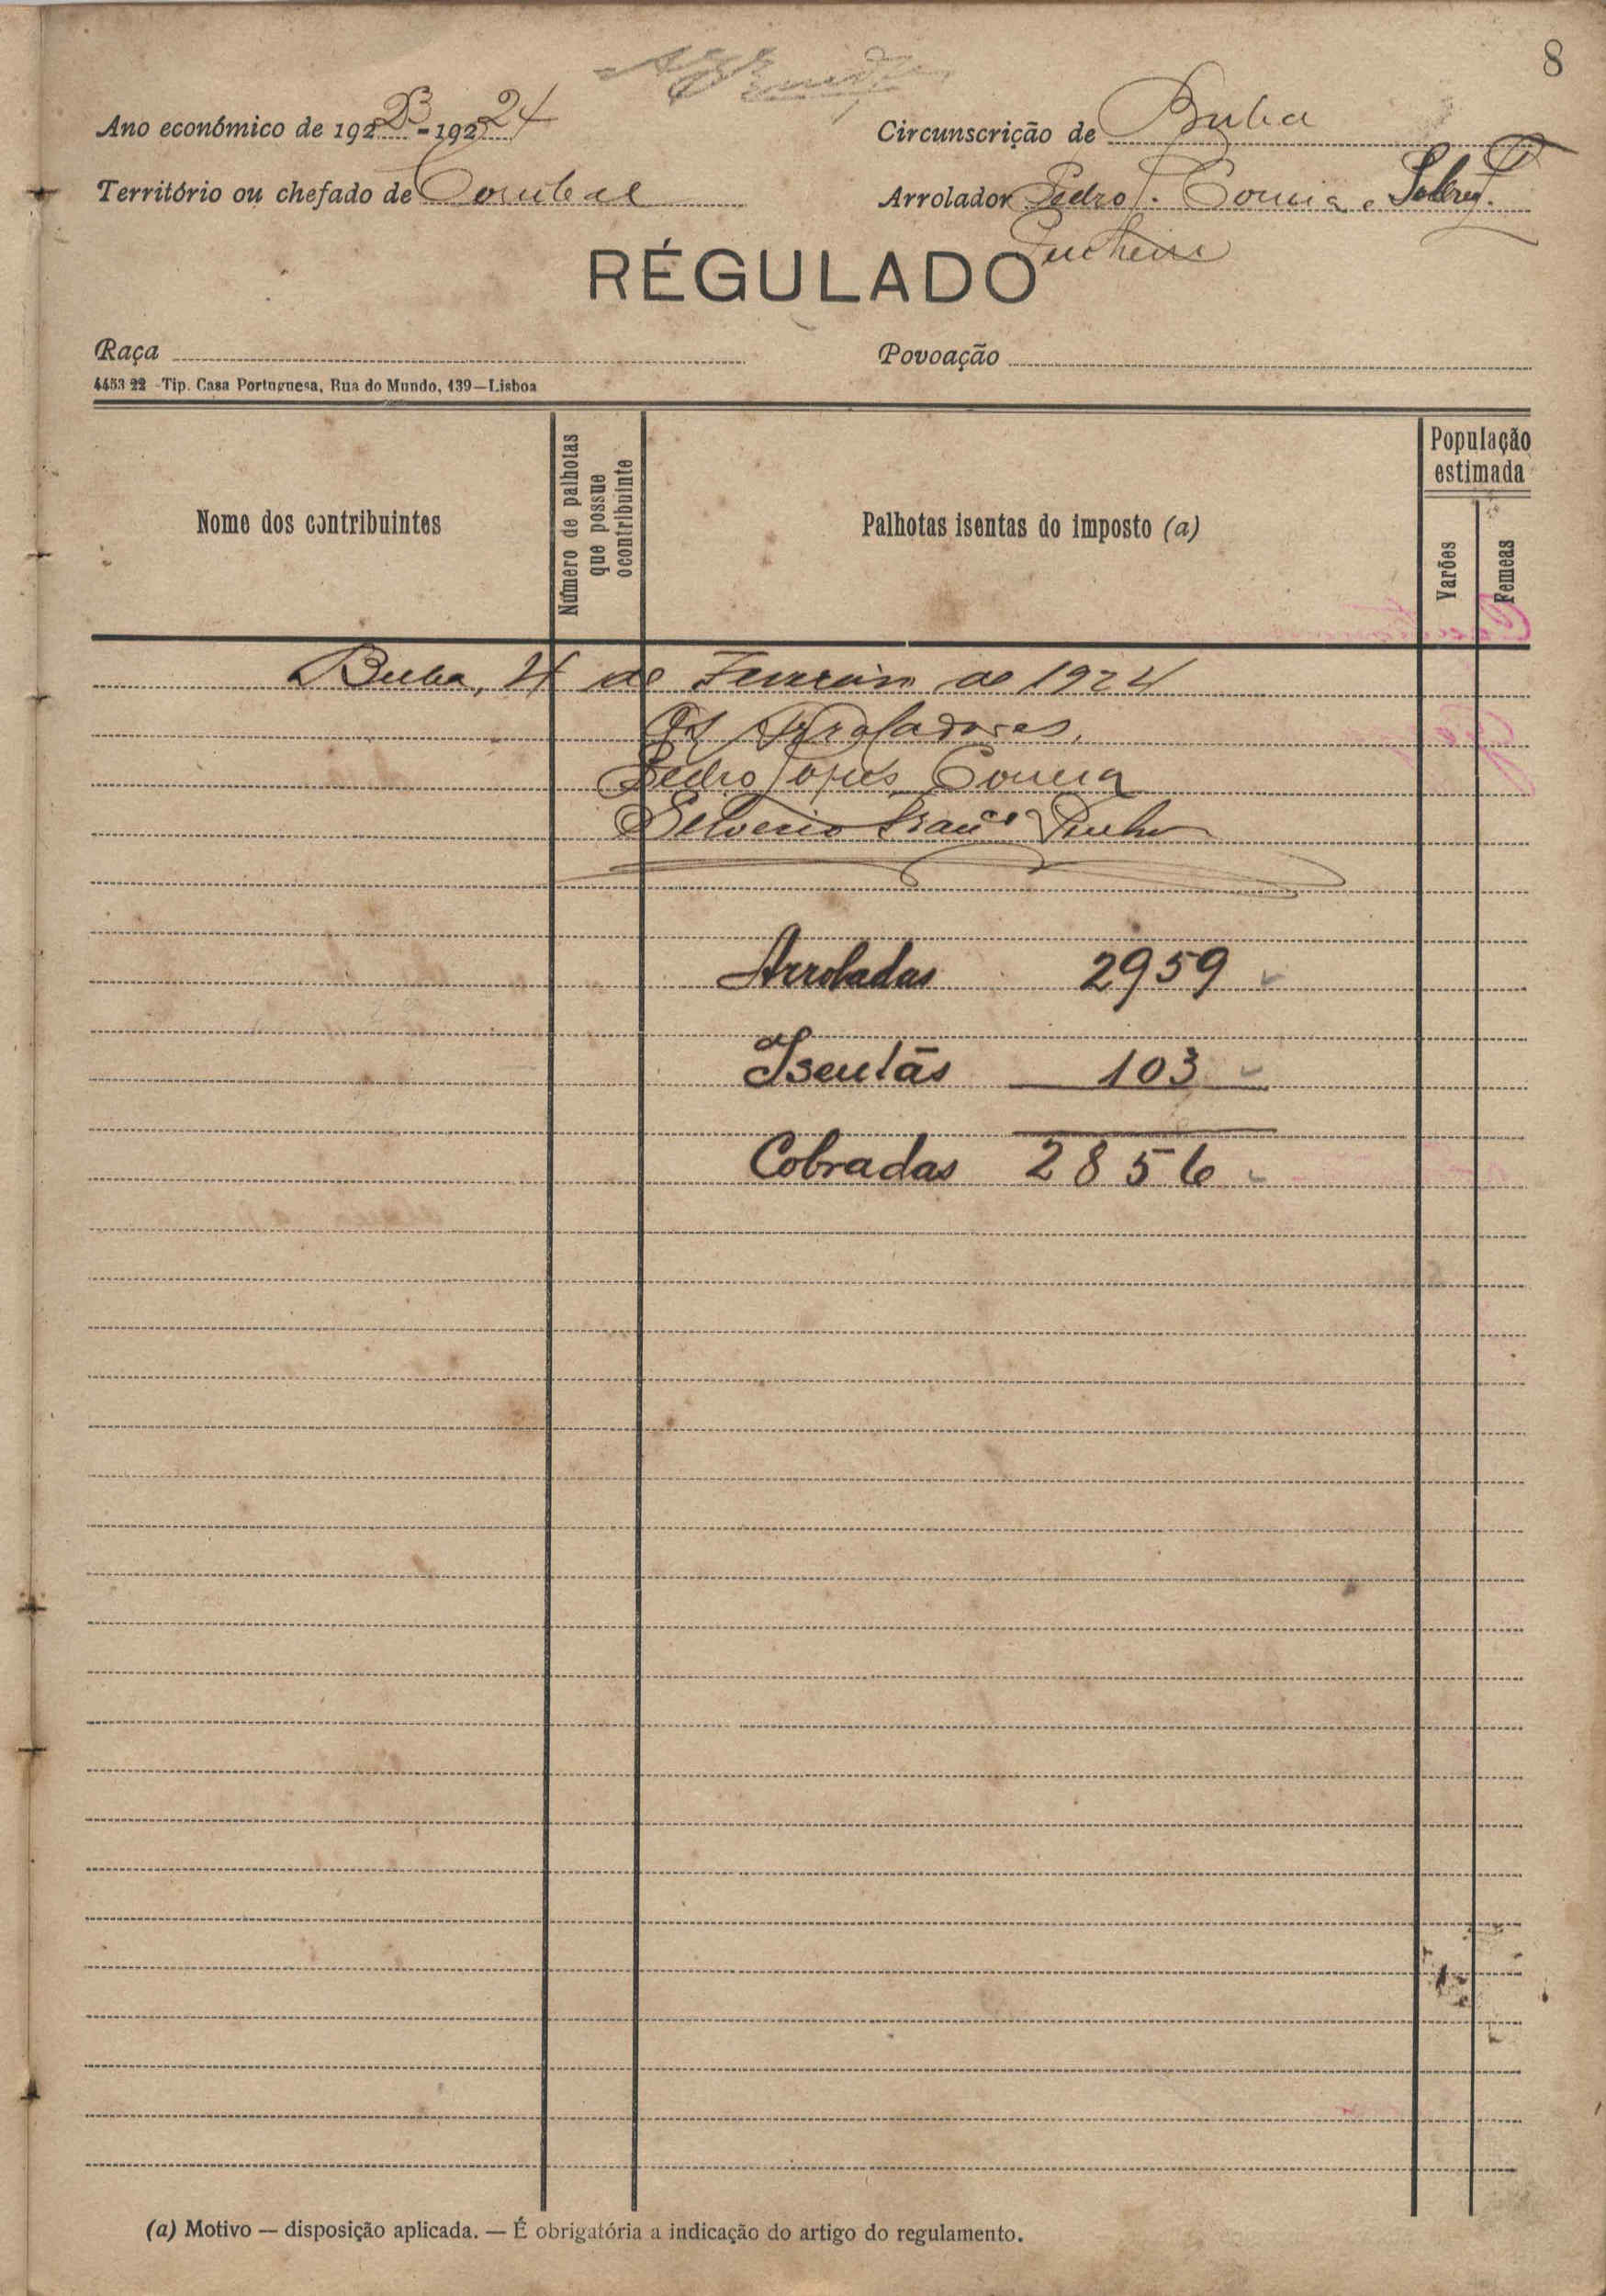 8
Ano económico de 1923-1924
Circunscrição de Buba
Território ou chefado de Corubal
Arrolador Pedro L. Correia e
RÉGULADO
Raça
Povoação
4453 22 - Tip. Casa Portuguesa, Rua do Mundo, 139—Lisboa
Nome dos contribuintes
Número de palhotas que possue o contribuinte
Palhotas isentas do imposto (a)
População estimada
Varões
Femeas
Buba, de Fevereiro de 1924
Os Arroladores,
Pedro Lopes Correia
Silverio
Arroladas 2959
Isentas 103
Cobradas 2856
(a) Motivo — disposição aplicada. — É obrigatória a indicação do artigo do regulamento.